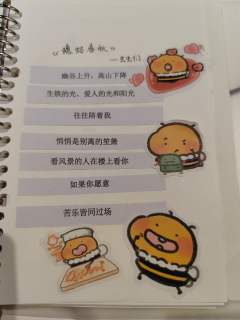 幽谷上升，高山下降
生铁的光、爱人的光和阳光
往往陪着我
悄悄是别离的笙箫
看风景的人在楼上看你
如果你愿意
苦乐皆同过场